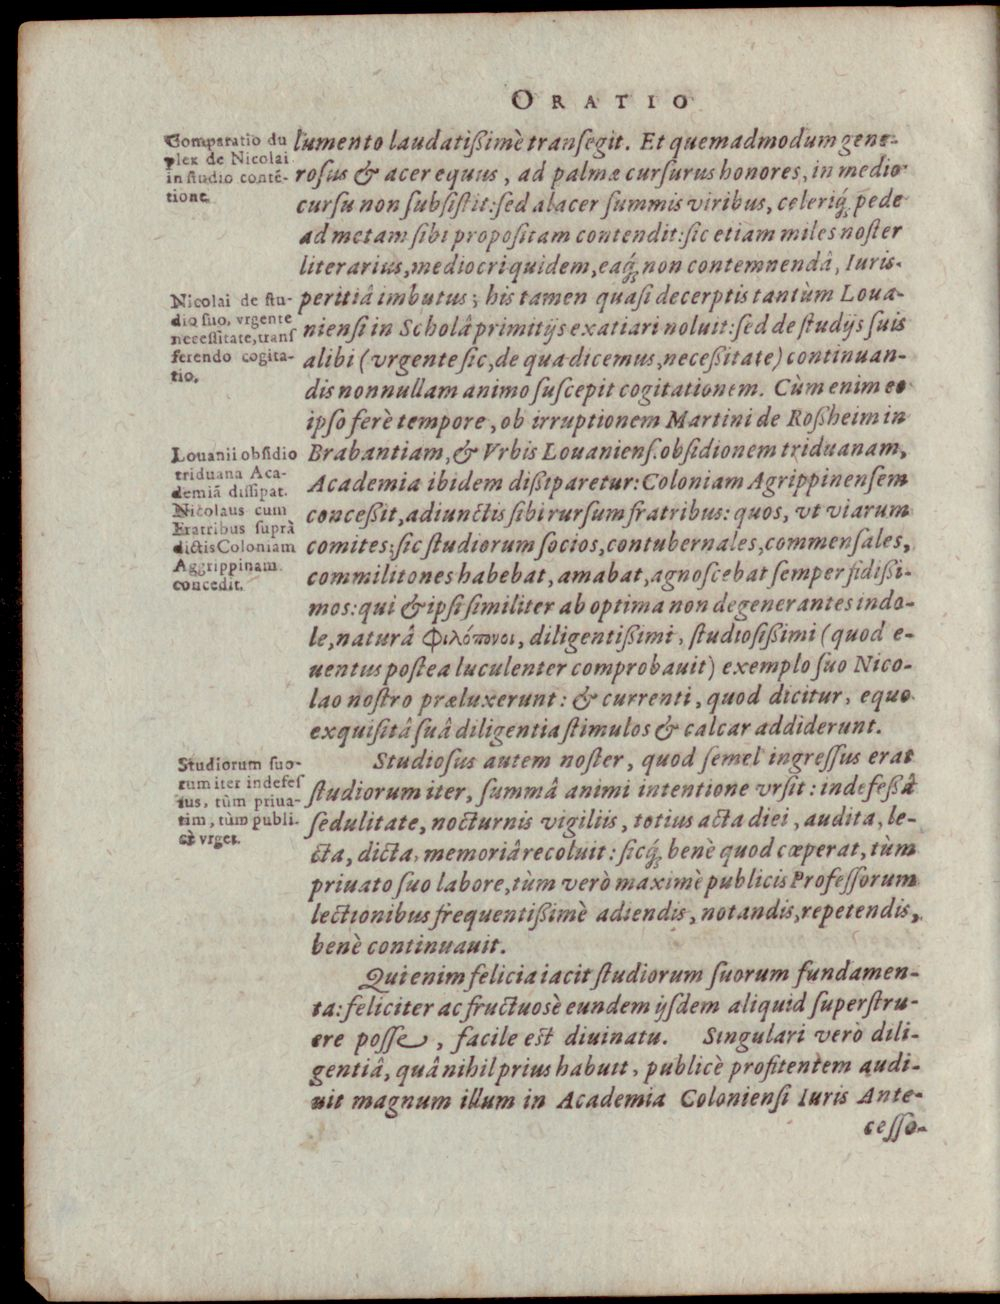 ORATIO
Comparatio du
plex de Nicolai
in studio contē-
tione.
lumento laudatißimè transegit. Et quemadmodum gene-
rosus & acer equus, ad palmæ cursurus honores, in medio
cursu non subsistit: sed alacer summis viribus, celeriq́; pede
ad metam sibi propositam contendit: sic etiam miles noster
literarius, mediocri quidem, eaq́; non contemnendâ, Iuris-
Nicolai de stu-
dio suo, vrgente
necessitate, trans
ferendo cogita-
tio.
peritiâ imbutus; his tamen quasi decerptis tantùm Loua-
niensi in Scholâ primitijs exatiari noluit: sed de studijs suis
alibi (vrgente sic, de qua dicemus, neceßitate) continuan-
dis nonnullam animo suscepit cogitationem. Cùm enim eo
ipso ferè tempore, ob irruptionem Martini de Roßheim in
Louanii obsidio
triduana Aca-
demiā dissipat.
Nicolaus cum
Fratribus suprà
dictis Coloniam
Aggrippinam
concedit.
Brabantiam, & Vrbis Louaniens. obsidionem triduanam,
Academia ibidem dißiparetur: Coloniam Agrippinensem
conceßit, adiunctis sibi rursum fratribus: quos, vt viarum
comites; sic studiorum socios, contubernales, commensales,
commilitones habebat, amabat, agnoscebat semper fidißi-
mos: qui & ipsi similiter ab optima non degenerantes indo-
le, naturâ Φιλόπονοι, diligentißimi, studiosißimi (quod e-
uentus postea luculenter comprobauit) exemplo suo Nico-
lao nostro præluxerunt: & currenti, quod dicitur, equo
exquisitâ suâ diligentia stimulos & calcar addiderunt.
Studiorum suo-
rum iter indefes
sus, tùm priua-
tim, tùm publi-
cè vrget.
Studiosus autem noster, quod semel ingressus erat
studiorum iter, summâ animi intentione vrsit: indefeßâ
sedulitate, nocturnis vigiliis, totius acta diei, audita, le-
cta, dicta, memoriâ recoluit: sicq́; benè quod cœperat, tùm
priuato suo labore, tùm verò maximè publicis Professorum
lectionibus frequentißimè adiendis, notandis, repetendis,
benè continuauit.
Qui enim felicia iacit studiorum suorum fundamen-
ta: feliciter ac fructuosè eundem ijsdem aliquid superstru-
ere posse, facile est diuinatu. Singulari verò dili-
gentiâ, quâ nihil prius habuit, publicè profitentem audi-
uit magnum illum in Academia Coloniensi Iuris Ante-
cesso-